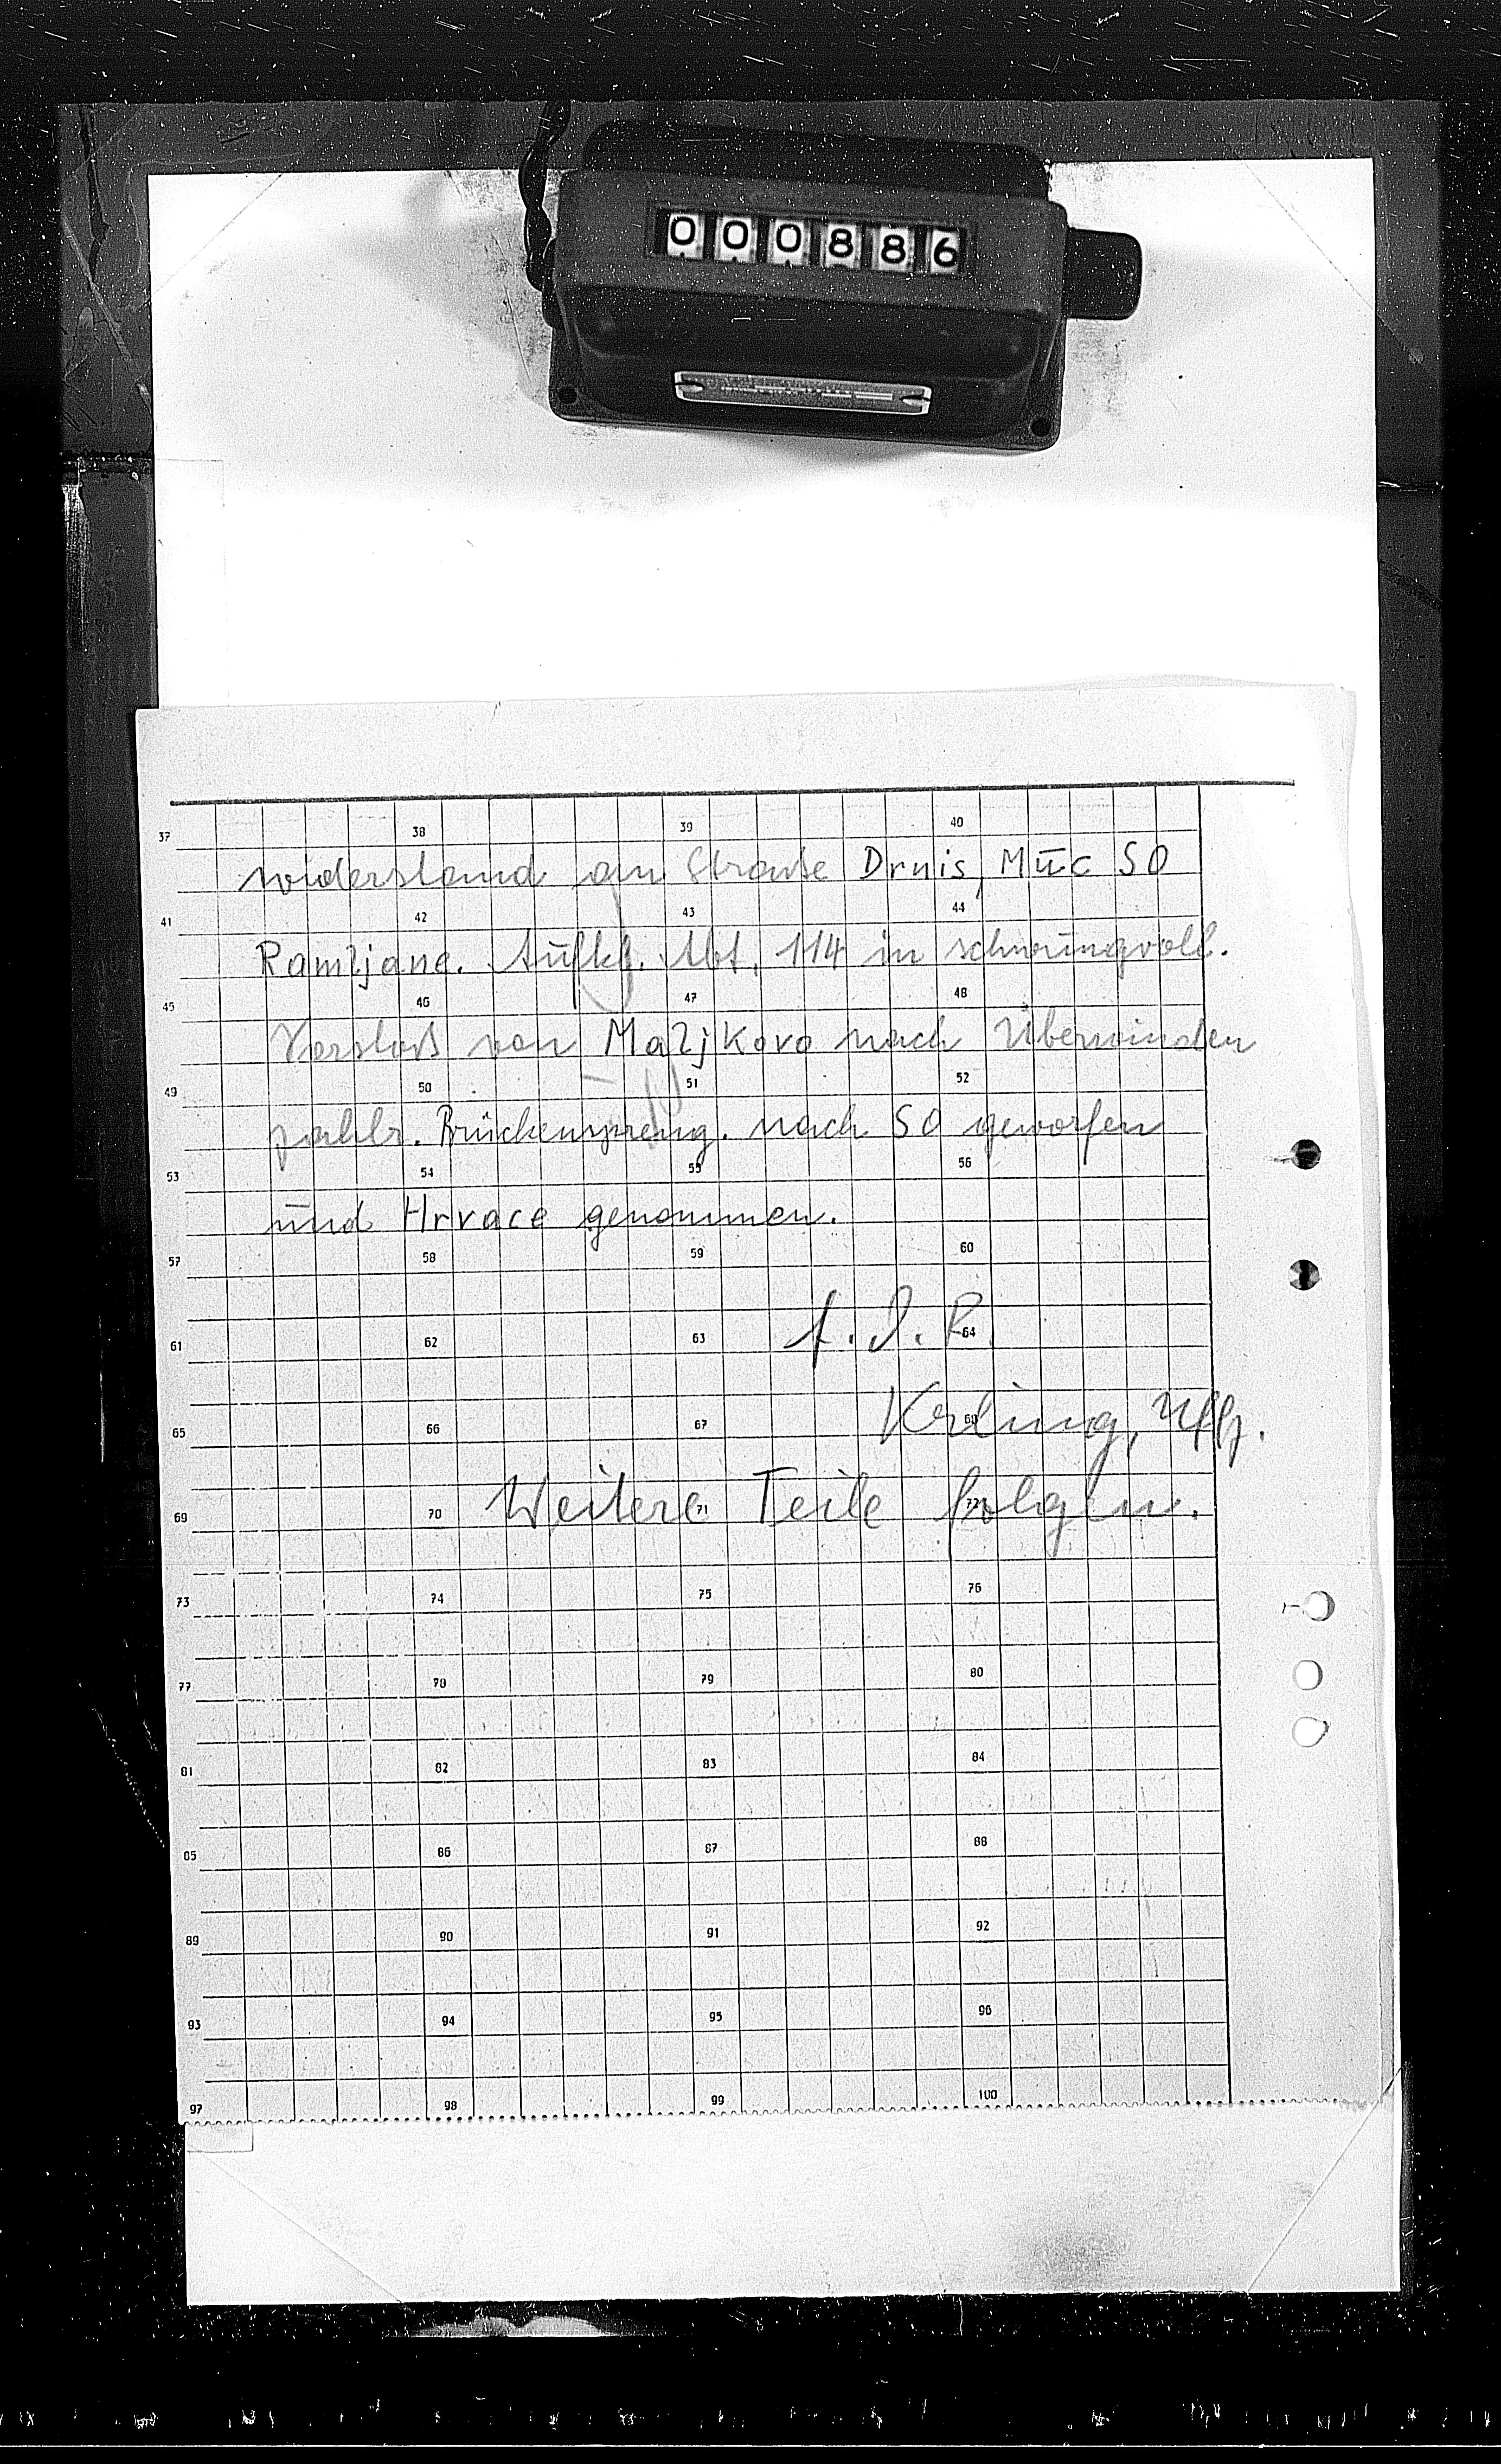 000886
37 38 39 40
widerstand an Straße Drnis, Muc SO
41 42 43 44
Ramljane. Aufkl. Abt. 114 in schwungvoll.
45 46 47 48
Vorstoß von Maljkovo nach Überwinden
49 50 51 52
zahlr. Brückenspreng. nach SO geworfen
53 54 55 56
und Hrvace genommen.
57 58 59 60
f. d. R.
61 62 63 64
Uffz.
65 66 67
Weitere Teile folgen.
69 70 71 72
73 74 75 76
77 78 79 80
81 82 83 84
85 86 87 88
89 90 91 92
93 94 95 96
97 98 99 100